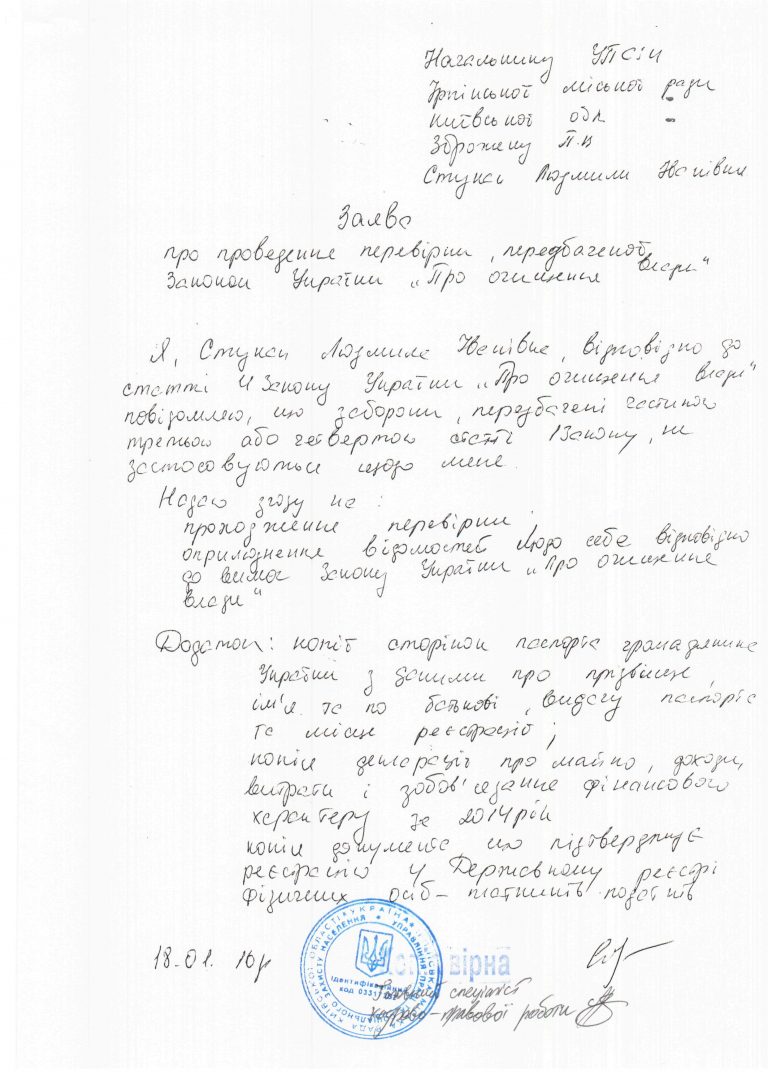 Начальнику УПСЗН
Ірпінської міської ради
Київської обл
Зброжеку П.В
Стукан Людмили Іванівни
Заява
про проведення перевірки, передбаченої
Законом України „Про очищення влади"
Я, Стукан Людмила Іванівна, відповідно до
статті 4 Закону України „Про очищення влади"
повідомляю, що заборони, передбачені частиною
третьою або четвертою статті 1 Закону, не
застосовуються щодо мене.
Надаю згоду на:
проходження перевірки
оприлюднення відомостей щодо себе відповідно
до вимог Закону України „Про очищення
влади"
Додаток: копії сторінок паспорта громадянина
України з даними про прізвище,
ім'я та по батькові, видачу паспорта
та місце реєстрації;
копія декларації про майно, доходи,
витрати і зобов'язання фінансового
характеру за 2014 рік
копія документа, що підтверджує
реєстрацію у Державному реєстрі
фізичних осіб – платників податків
18.01. 16р
вірна
Головний спеціаліст
кадрово-правової роботи